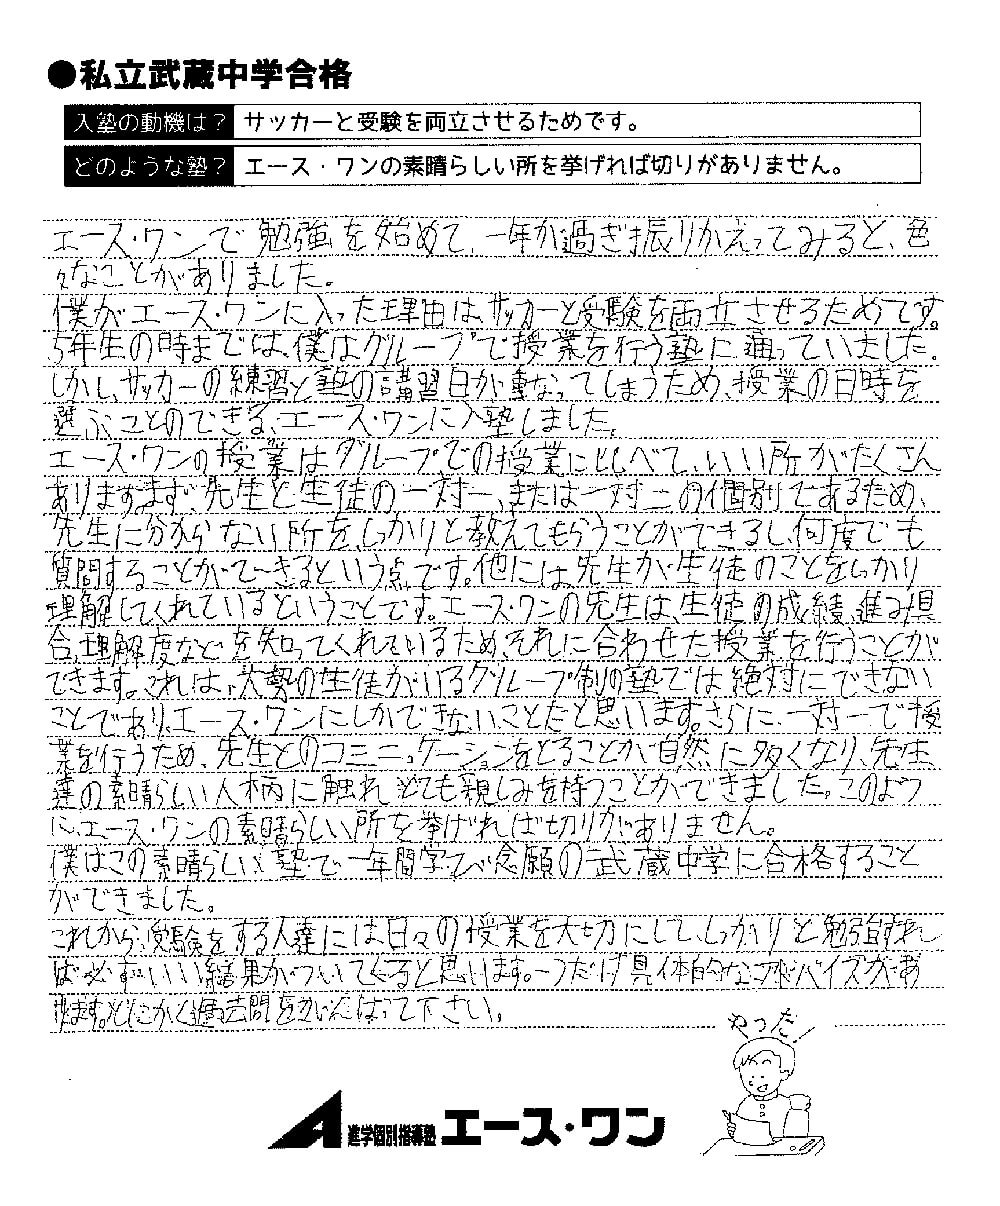 ●私立武蔵中学合格
入塾の動機は? サッカーと受験を両立させるためです。
どのような塾? エース・ワンの素晴らしい所を挙げれば切りがありません。
エース・ワンで勉強を始めて、一年が過ぎ振りかえってみると、色
々なことがありました。
僕がエース・ワンに入った理由は、サッカーと受験を両立させるためです。
5年生の時までは、僕はグループで授業を行う塾に通っていました。
しかし、サッカーの練習と塾の講習日が重なってしまうため、授業の日時を
選ぶことのできる、エース・ワンに入塾しました。
エース・ワンの授業はグループでの授業にくらべて、いい所がたくさん
あります。まず、先生と生徒の一対一、または一対二の個別であるため、
先生に分からない所をしっかりと教えてもらうことができるし、何度でも
質問することができるという点です。他には先生が生徒のことをしっかり
理解してくれているということです。エース・ワンの先生は、生徒の成績、進み具
合、理解度などを知ってくれているため、それに合わせた授業を行うことが
できます。これは、大勢の生徒がいるグループ制の塾では絶対にできない
ことであり、エース・ワンにしかできないことだと思います。さらに、一対一で授
業を行うため、先生とのコミニュケーションをとることが自然に多くなり、先生
達の素晴らしい人柄に触れ、とても親しみを持つことができました。このよう
に、エース・ワンの素晴らしい所を挙げれば切りがありません。
僕はこの素晴らしい塾で一年間学び念願の武蔵中学に合格すること
ができました。
これから、受験をする人達には日々の授業を大切にして、しっかりと勉強すれ
ば必ずいい結果がついてくると思います。一つだけ具体的なアドバイスがあ
ります。とにかく過去問をがんばって下さい。
やった!
進学個別指導塾 エース・ワン